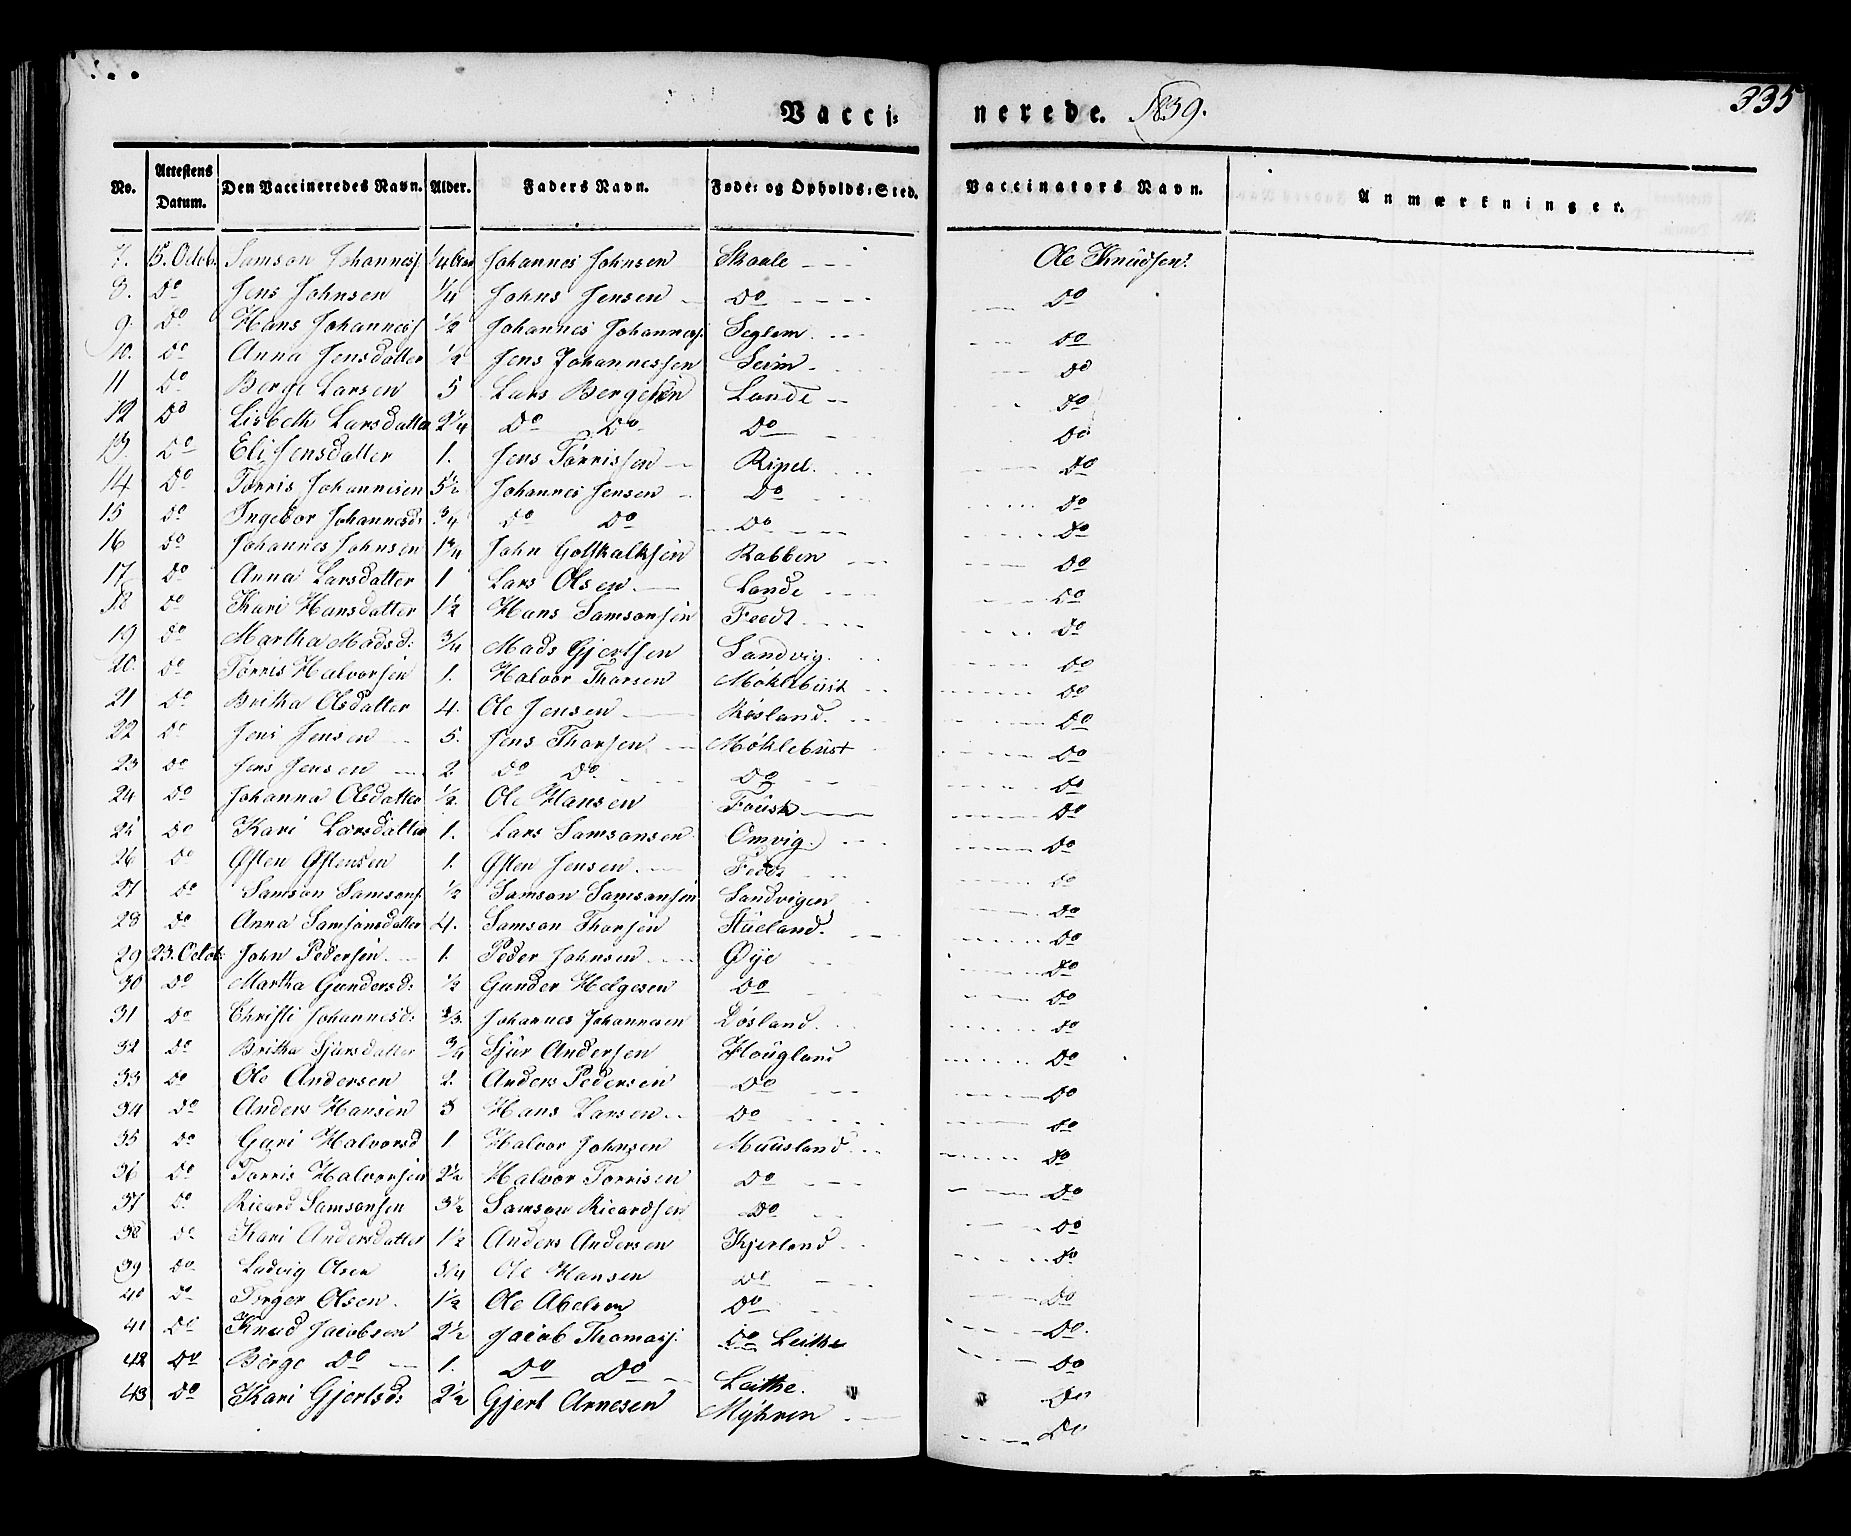 335
Vacci- nerede. 1839.
No. Attestens Datum. Den Vaccineredes Navn. Alder. Faders Navn. Føde- og Opholds-Sted. Vaccinators Navn. Anmærkninger.
7. 15. Octob. Samson Johannesf 1/4 Johannes Johnsen Skaale Ole Knudsen
8. Do Jens Johnsen 1/4 Johns Jensen Do Do
9. Do Hans Johannesf 1/2 Johannes Johannesf. Seglem Do
10. Do Anna Jensdatter 1/2 Jens Johannessen Seim Do
11 Do Berge Larsen 5 Lars Bergesen Lande Do
12 Do Lisbeth Larsdatter 2 1/4 Do Do Do Do
13. Do Eli Jensdatter 1. Jens Tørrissen Ripel. Do
14 Do Tørris Johannesen 5 1/2 Johannes Jensen Do Do
15 Do Ingebor Johannesd: 3/4 Do Do Do Do
16 Do Johannes Johnsen 1 3/4 John Gotskalksen Rabben Do
17 Do Anna Larsdatter 1 Lars Olsen Lande Do
18 Do Kari Hansdatter 1 1/2 Hans Samsonsen Feedt Do
19 Do Martha Madsd: 3/4 Mads Gjertsen Sandvig. Do
20. Do Tørris Halvorsen 1. Halvor Thorsen Møklebust Do
21 Do Britha Olsdatter 4. Ole Jensen Røsland. Do
22 Do Jens Jensen 5. Jens Thorsen Møklebust Do
23 Do Jens Jensen 2 Do Do Do Do
24 Do Johanna Olsdatter 1/2. Ole Hansen Fousk Do
25 Do Kari Larsdatter 1. Lars Samsonsen Omvig. Do
26 Do Østen Østensen 1. Østen Jensen Feedt Do
27 Do Samson Samsonf. 1/2 Samson Samsonsen Sandvigen Do
28 Do Anna Samsonsdatter 4. Samson Thorsen Stueland. Do
29 23. Octob: John Pedersen 1. Peder Johnsen Øye Do
30 Do Martha Gundersd: 1/2 Gunder Helgesen Do Do
31 Do Christi Johannesd: 2/3. Johannes Johannesen Døsland Do
32 Do Britha Sjursdatter 3/4 Sjur Andersen Hougland Do
33 Do Ole Andersen 2. Anders Pedersen Do Do
34 Do Anders Hansen 3 Hans Larsen Do Do
35 Do Guri Halvorsd 1 Halvor Johnsen Muusland Do
36 Do Torris Halvorsen 2 1/2 Halvor Torrisen Do Do
37 Do Ricard Samsonsen 3 1/2 Samson Ricardsen Do Do
38 Do Kari Andersdatter 1 1/2 Anders Andersen Kjerland Do
39 Do Ludvig Olsen 3/4 Ole Hansen Do Do
40 Do Torger Olsen 1 1/2 Ole Abelsen Do Do
41 Do Knud Jacobsen 2 1/2 Jacob Thomasf. Do Leithe Do
42 Do Børge Do 1. Do Do Leithe. Do
43 Do Kari Gjertsd: 2 1/2 Gjert Arnesen Myhren Do
Do